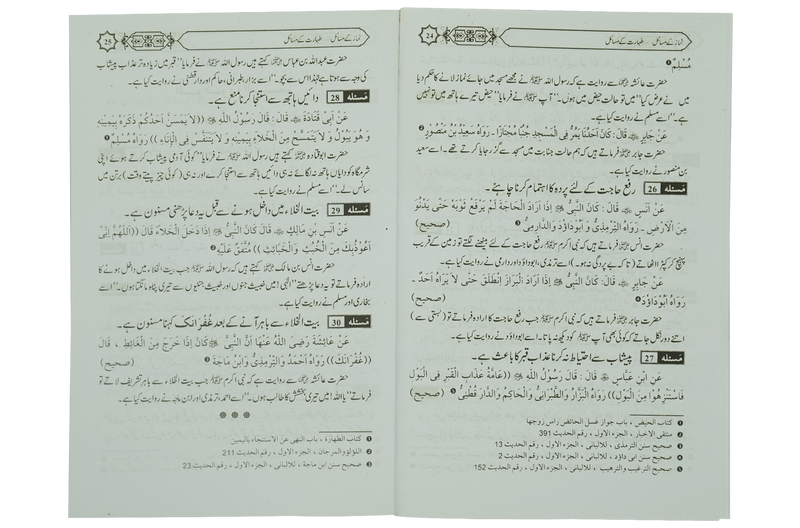 نماز کے مسائل ... طہارت کے مسائل
24
مُسْلِمٌ ❶
حضرت عائشہ ؓ سے روایت ہے کہ رسول اللہ ﷺ نے مجھے مسجد میں جائے نماز لانے کا حکم دیا
میں نے عرض کیا ’’میں تو حالت حیض میں ہوں۔‘‘ آپ ﷺ نے فرمایا ’’حیض تیرے ہاتھ میں تو نہیں
ہے۔‘‘ اسے مسلم نے روایت کیا ہے۔
عَنْ جَابِرٍ ؓ قَالَ: كَانَ أَحَدُنَا يَمُرُّ فِى الْمَسْجِدِ جُنُبًا مُجْتَازًا. رَوَاهُ سَعِيْدُ بْنُ مَنْصُوْرٍ ❷
حضرت جابر ؓ فرماتے ہیں کہ ہم حالت جنابت میں مسجد سے گزر جایا کرتے تھے۔ اسے سعید
بن منصور نے روایت کیا ہے۔
مسئلہ 26 رفع حاجت کے لئے پردہ کا اہتمام کرنا چاہئے۔
عَنْ اَنَسٍ ؓ قَالَ: كَانَ النَّبِىُّ ﷺ إِذَا اَرَادَ الْحَاجَةَ لَمْ يَرْفَعْ ثَوْبَهُ حَتّٰى يَدْنُوَ
مِنَ الْاَرْضِ. رَوَاهُ التِّرْمِذِىُّ وَ اَبُوْدَاؤُدَ وَالدَّارِمِىُّ ❸ (صحيح)
حضرت انس ؓ فرماتے ہیں کہ نبی اکرم ﷺ رفع حاجت کے لئے بیٹھنے لگتے تو زمین کے قریب
پہنچ کر کپڑا اٹھاتے (تا کہ بے پردگی نہ ہو)۔ اسے ترمذی، ابوداؤد اور دارمی نے روایت کیا ہے۔
عَنْ جَابِرٍ ؓ قَالَ: كَانَ النَّبِىُّ ﷺ إِذَا اَرَادَ الْبَرَازَ اِنْطَلَقَ حَتّٰى لاَ يَرَاهُ اَحَدٌ.
رَوَاهُ اَبُوْدَاؤُدَ ❹ (صحيح)
حضرت جابر ؓ فرماتے ہیں کہ نبی اکرم ﷺ جب رفع حاجت کا ارادہ فرماتے تو (بستی سے)
اتنے دور نکل جاتے کہ کوئی بھی آپ ﷺ کو دیکھ نہ پاتا۔ اسے ابوداؤد نے روایت کیا ہے۔
مسئلہ 27 پیشاب سے احتیاط نہ کرنا عذاب قبر کا باعث ہے۔
عَنِ ابْنِ عَبَّاسٍ ؓ قَالَ: قَالَ رَسُوْلُ اللّٰهِ ﷺ ((عَامَّةُ عَذَابِ الْقَبْرِ فِى الْبَوْلِ
فَاسْتَنْزِهُوْا مِنَ الْبَوْلِ)) رَوَاهُ الْبَزَّارُ وَالطَّبْرَانِىُّ وَالْحَاكِمُ وَالدَّارَ قُطْنِىُّ ❺ (صحيح)
❶ كتاب الحيض ، باب جواز غسل الحائض راس زوجها
❷ منتقى الاخبار ، الجزء الاول ، رقم الحديث 391
❸ صحيح سنن الترمذى ، للالبانى ، الجزء الاول ، رقم الحديث 13
❹ صحيح سنن ابى داؤد ، للالبانى ، الجزء الاول ، رقم الحديث 2
❺ صحيح الترغيب والترهيب ، للالبانى ، الجزء الاول ، رقم الحديث 152
نماز کے مسائل ... طہارت کے مسائل
25
حضرت عبداللہ بن عباس ؓ کہتے ہیں رسول اللہ ﷺ نے فرمایا ’’قبر میں زیادہ تر عذاب پیشاب
کی وجہ سے ہوتا ہے لہٰذا اس سے بچو۔‘‘ اسے بزار، طبرانی، حاکم اور دارقطنی نے روایت کیا ہے۔
مسئلہ 28 دائیں ہاتھ سے استنجا کرنا منع ہے۔
عَنْ اَبِىْ قَتَادَةَ ؓ قَالَ: قَالَ رَسُوْلُ اللّٰهِ ﷺ ((لاَ يَمَسَّنَّ اَحَدُكُمْ ذَكَرَهُ بِيَمِيْنِهِ
وَ هُوَ يَبُوْلُ وَ لاَ يَتَمَسَّحْ مِنَ الْخَلاَءِ بِيَمِيْنِهِ وَ لاَ يَتَنَفَّسْ فِى الْاِنَاءِ)) رَوَاهُ مُسْلِمٌ ❶
حضرت ابوقتادہ ؓ کہتے ہیں رسول اللہ ﷺ نے فرمایا ’’کوئی آدمی پیشاب کرتے ہوئے اپنی
شرمگاہ کو دایاں ہاتھ نہ لگائے نہ ہی دائیں ہاتھ سے استنجا کرے اور نہ ہی (کوئی چیز پیتے وقت) برتن میں
سانس لے۔‘‘ اسے مسلم نے روایت کیا ہے۔
مسئلہ 29 بیت الخلاء میں داخل ہونے سے قبل یہ دعا پڑھنی مسنون ہے۔
عَنْ اَنَسِ بْنِ مَالِكٍ ؓ قَالَ: كَانَ النَّبِىُّ ﷺ إِذَا دَخَلَ الْخَلاَءَ قَالَ ((اَللّٰهُمَّ اِنِّىْ
اَعُوْذُبِكَ مِنَ الْخُبُثِ وَالْخَبَائِثِ)) مُتَّفَقٌ عَلَيْهِ ❷
حضرت انس بن مالک ؓ کہتے ہیں کہ رسول اللہ ﷺ جب بیت الخلاء میں داخل ہونے کا
ارادہ فرماتے تو یہ دعا پڑھتے ’’الٰہی! میں خبیث جنوں اور خبیث جنیوں سے تیری پناہ مانگتا ہوں۔‘‘ اسے
بخاری اور مسلم نے روایت کیا ہے۔
مسئلہ 30 بیت الخلاء سے باہر آنے کے بعد غُفْرَانَكَ کہنا مسنون ہے۔
عَنْ عَائِشَةَ رَضِىَ اللّٰهُ عَنْهَا اَنَّ النَّبِىَّ ﷺ كَانَ إِذَا خَرَجَ مِنَ الْغَائِطِ ، قَالَ
((غُفْرَانَكَ)) رَوَاهُ اَحْمَدُ وَالتِّرْمِذِىُّ وَابْنُ مَاجَةَ ❸ (صحيح)
حضرت عائشہ ؓ سے روایت ہے کہ نبی اکرم ﷺ جب بیت الخلاء سے باہر تشریف لاتے تو
فرماتے ’’یا اللہ! میں تیری بخشش کا طالب ہوں۔‘‘ اسے احمد، ترمذی اور ابن ماجہ نے روایت کیا ہے۔
❶ كتاب الطهارة ، باب النهى عن الاستنجاء باليمين
❷ اللؤلؤ والمرجان ، الجزء الاول ، رقم الحديث 211
❸ صحيح سنن ابن ماجة ، للالبانى ، الجزء الاول ، رقم الحديث 23